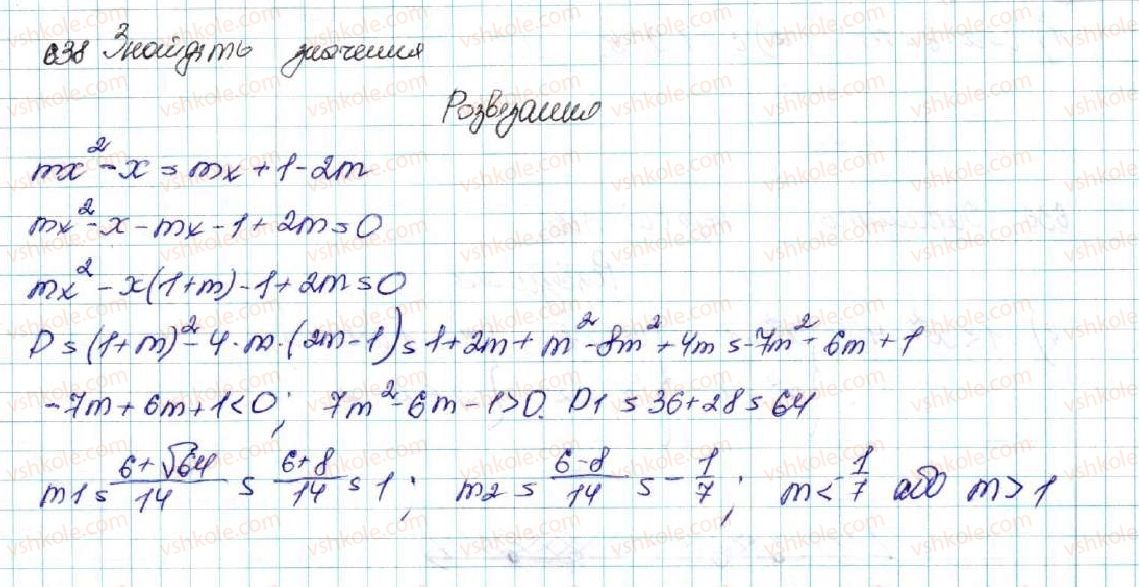 838 Знайдіть значення
Розв'язання
mx² - x = mx + 1 - 2m
mx² - x - mx - 1 + 2m = 0
mx² - x(1+m) - 1 + 2m = 0
D = (1+m)² - 4·m·(2m-1) = 1 + 2m + m² - 8m² + 4m = -7m² + 6m + 1
-7m + 6m + 1 < 0; 7m² - 6m - 1 > 0. D1 = 36 + 28 = 64
m1 = (6+√64)/14 = (6+8)/14 = 1; m2 = (6-8)/14 = -1/7; m < -1/7 або m > 1